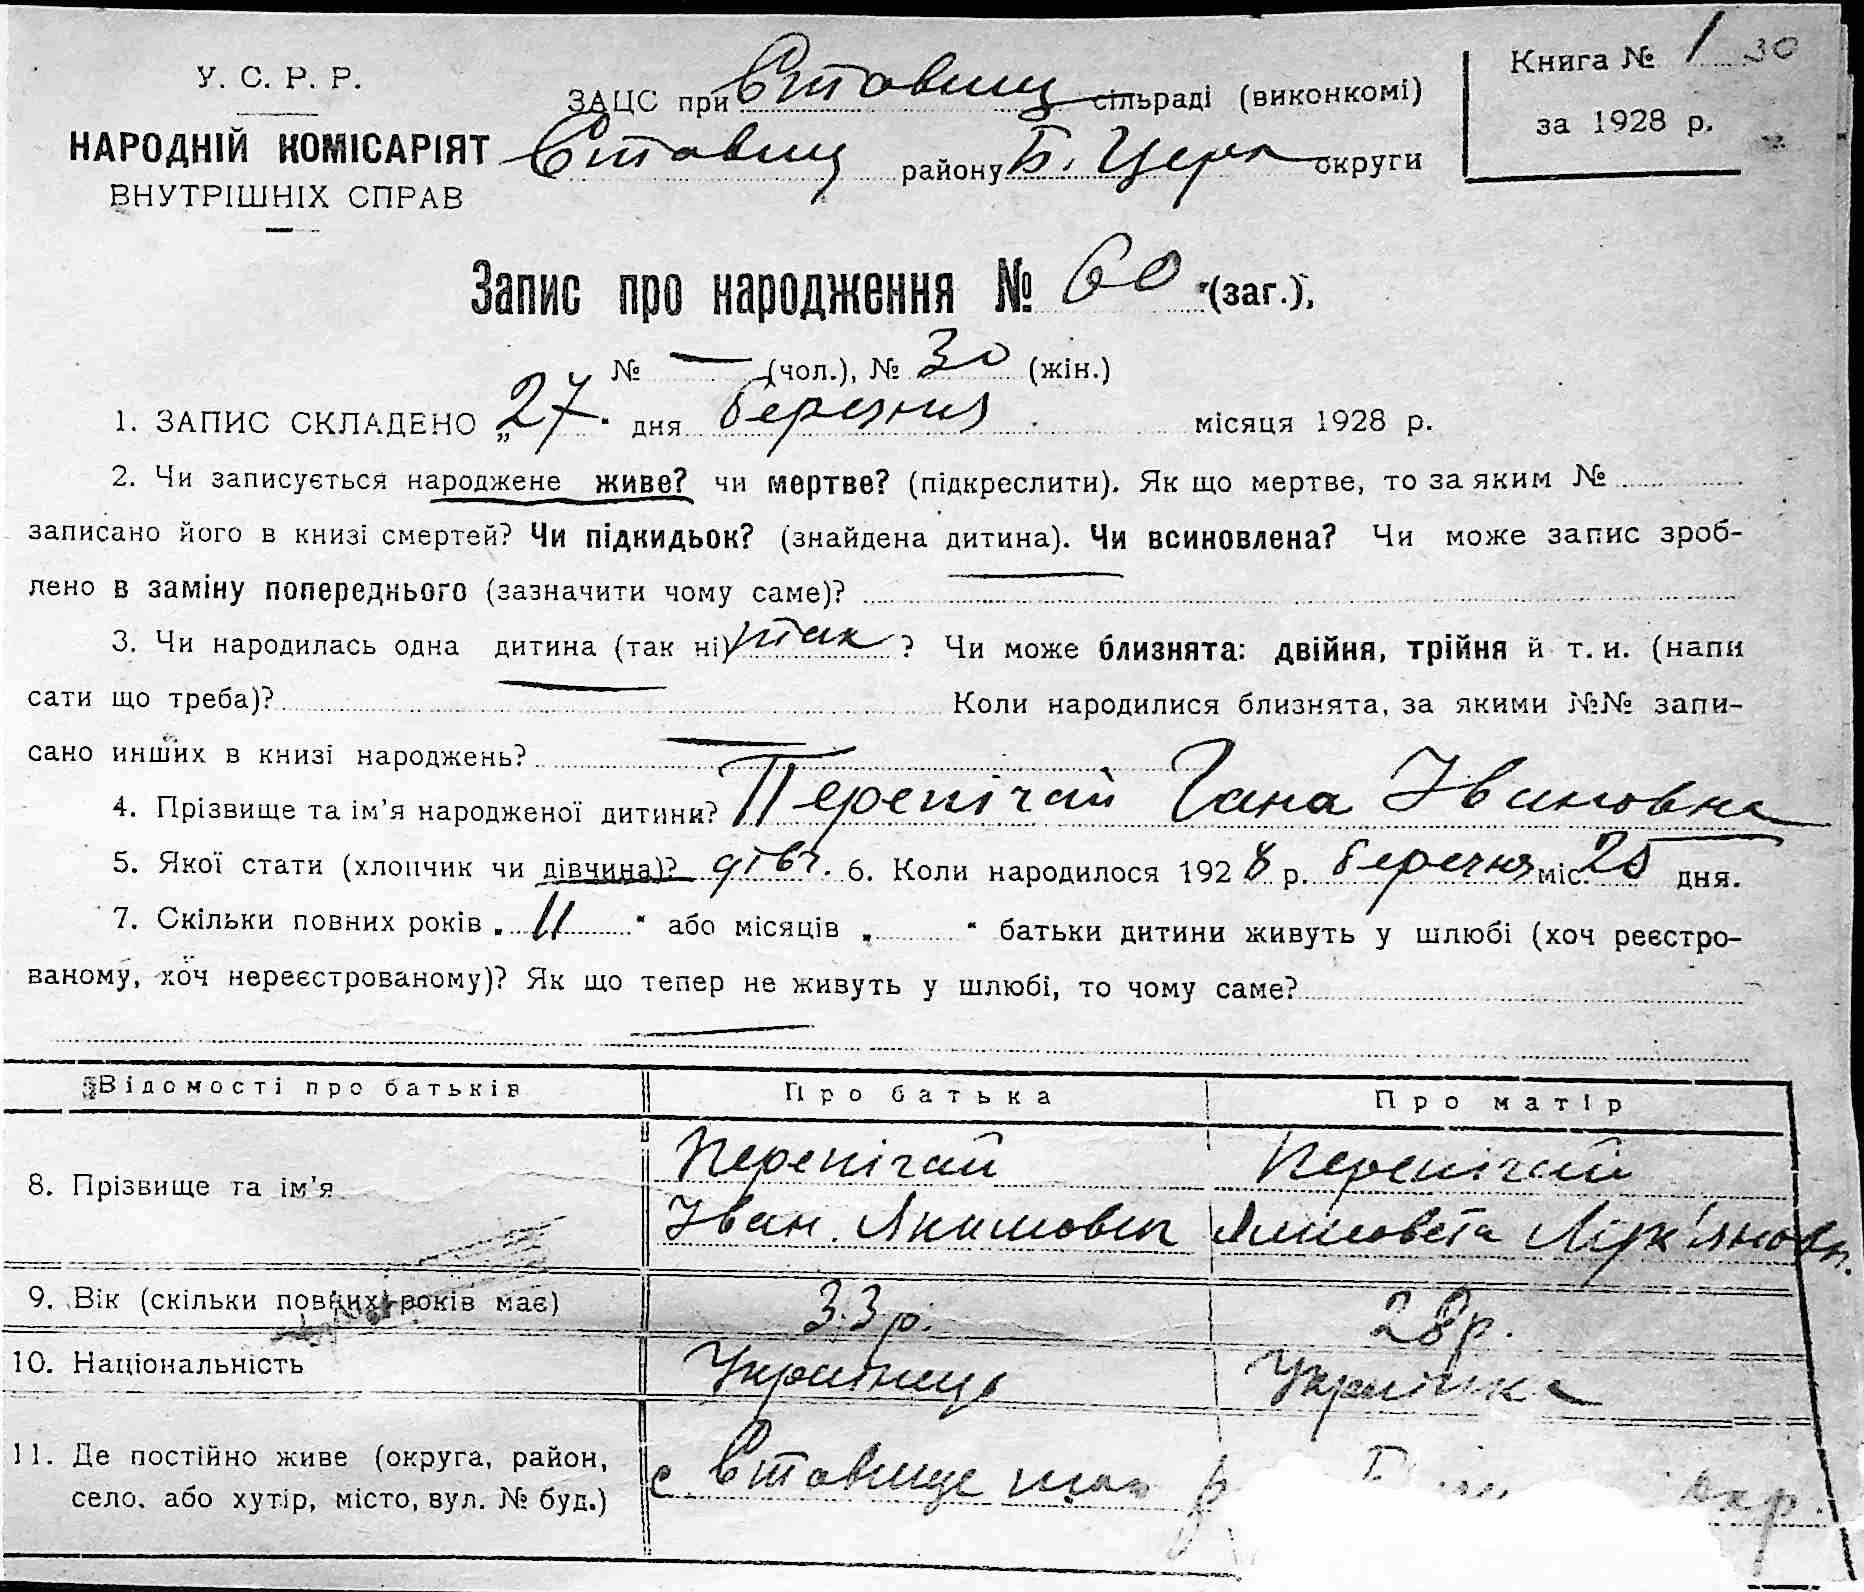 У. С. Р. Р.
НАРОДНІЙ КОМІСАРІЯТ
ВНУТРІШНІХ СПРАВ
ЗАЦС при Ставищ сільраді (виконкомі)
Ставищ району Б. Церк округи
Книга № 1 30
за 1928 р.
Запис про народження № 60 (заг.),
№ — (чол.), № 30 (жін.)
1. ЗАПИС СКЛАДЕНО „27" дня березня місяця 1928 р.
2. Чи записується народжене живе? чи мертве? (підкреслити). Як що мертве, то за яким №
записано його в книзі смертей? Чи підкидьок? (знайдена дитина). Чи всиновлена? Чи може запис зроб-
лено в заміну попереднього (зазначити чому саме)?
3. Чи народилась одна дитина (так ні) так ? Чи може близнята: двійня, трійня й т. и. (напи
сати що треба)? Коли народилися близнята, за якими №№ запи-
сано инших в книзі народжень?
4. Прізвище та ім'я народженої дитини? Перепічай Гана Івановна
5. Якої стати (хлопчик чи дівчина)? дівч. 6. Коли народилося 1928 р. березня міс. 25 дня.
7. Скільки повних років „11" або місяців „ " батьки дитини живуть у шлюбі (хоч реєстро-
ваному, хоч нереєстрованому)? Як що тепер не живуть у шлюбі, то чому саме?
Відомості про батьків Про батька Про матір
8. Прізвище та ім'я Перепічай Перепічай
Іван Якимович
9. Вік (скільки повних років має) 33 р. 28 р.
10. Національність Українець Українка
11. Де постійно живе (округа, район,
село, або хутір, місто, вул. № буд.)
с Ставище р окр.